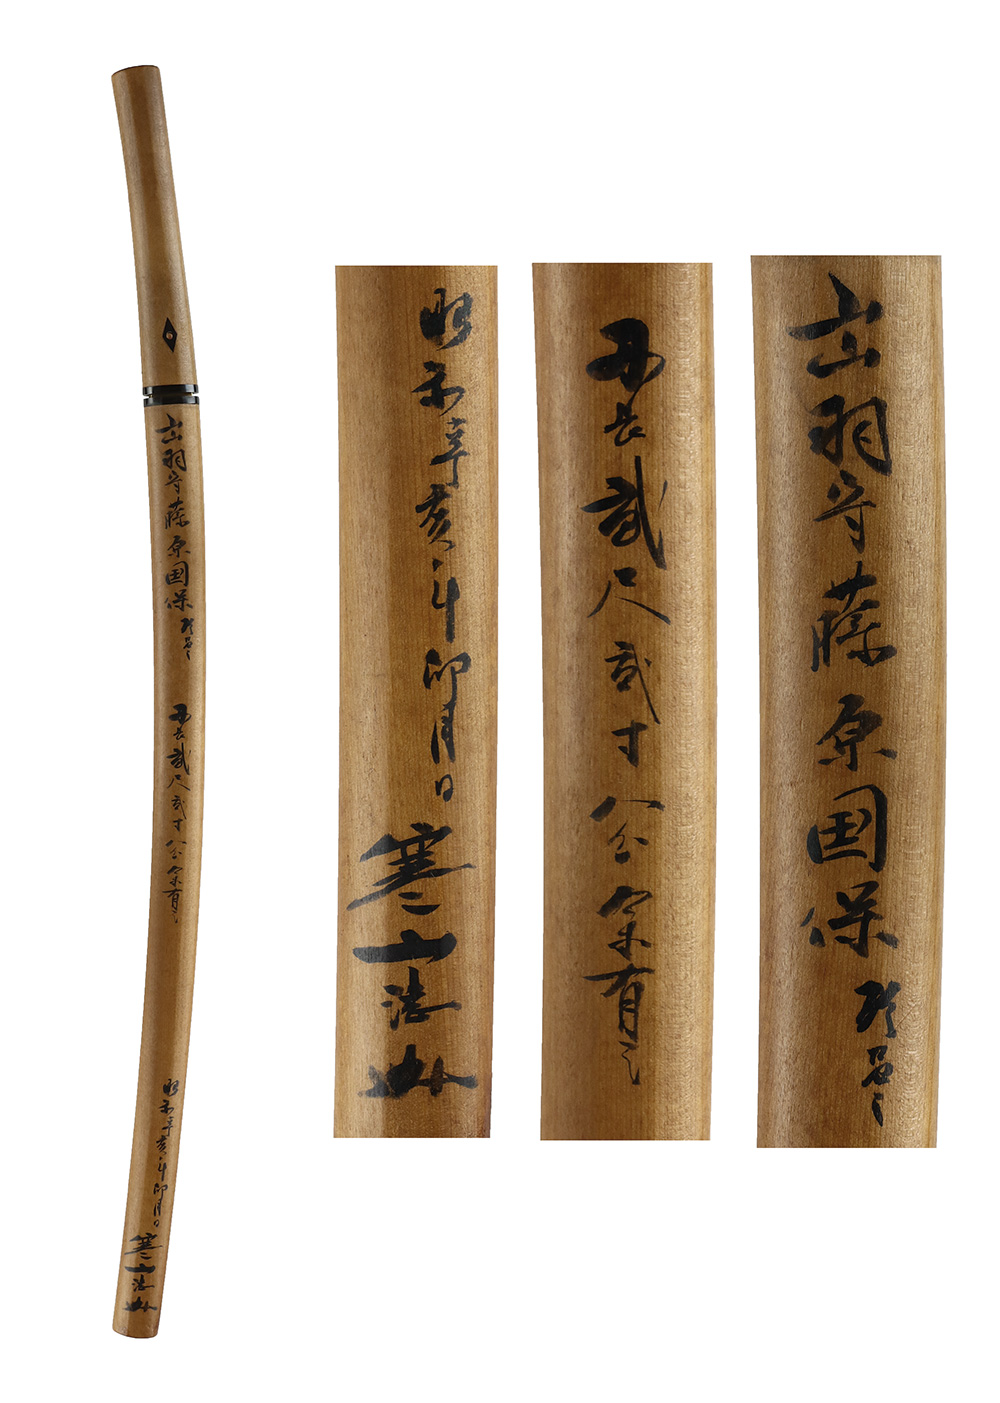 出羽守藤原国保 珎品
刃長貳尺貳寸八分余有之
昭和辛亥年卯月日 寒山誌
出羽守藤原国保 珎品
刃長貳尺貳寸八分余有之
昭和辛亥年卯月日 寒山誌